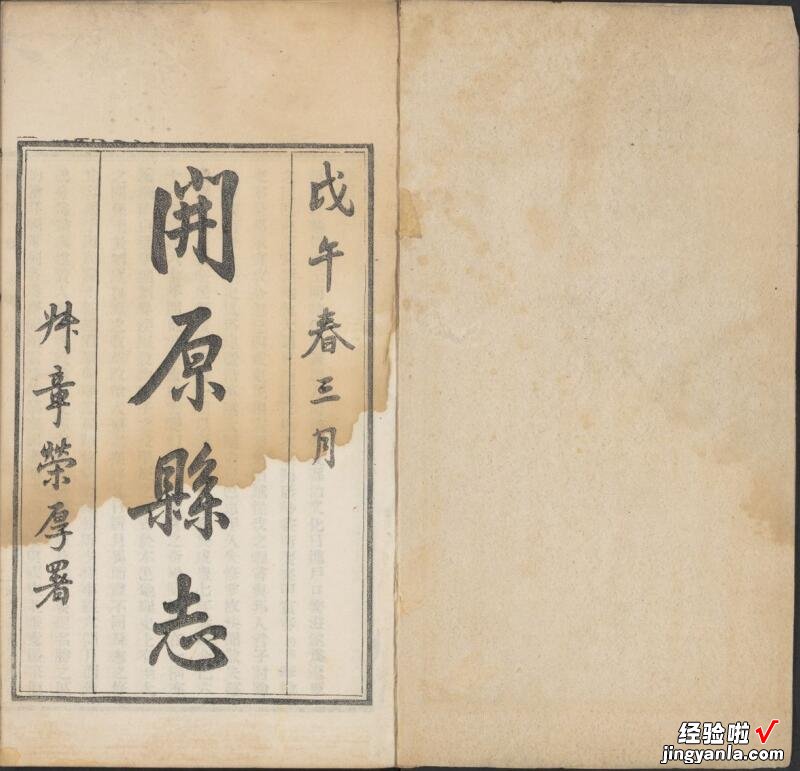 戊午春三月
開原縣志
叔章榮厚署
经验啦√
jingyanla.com